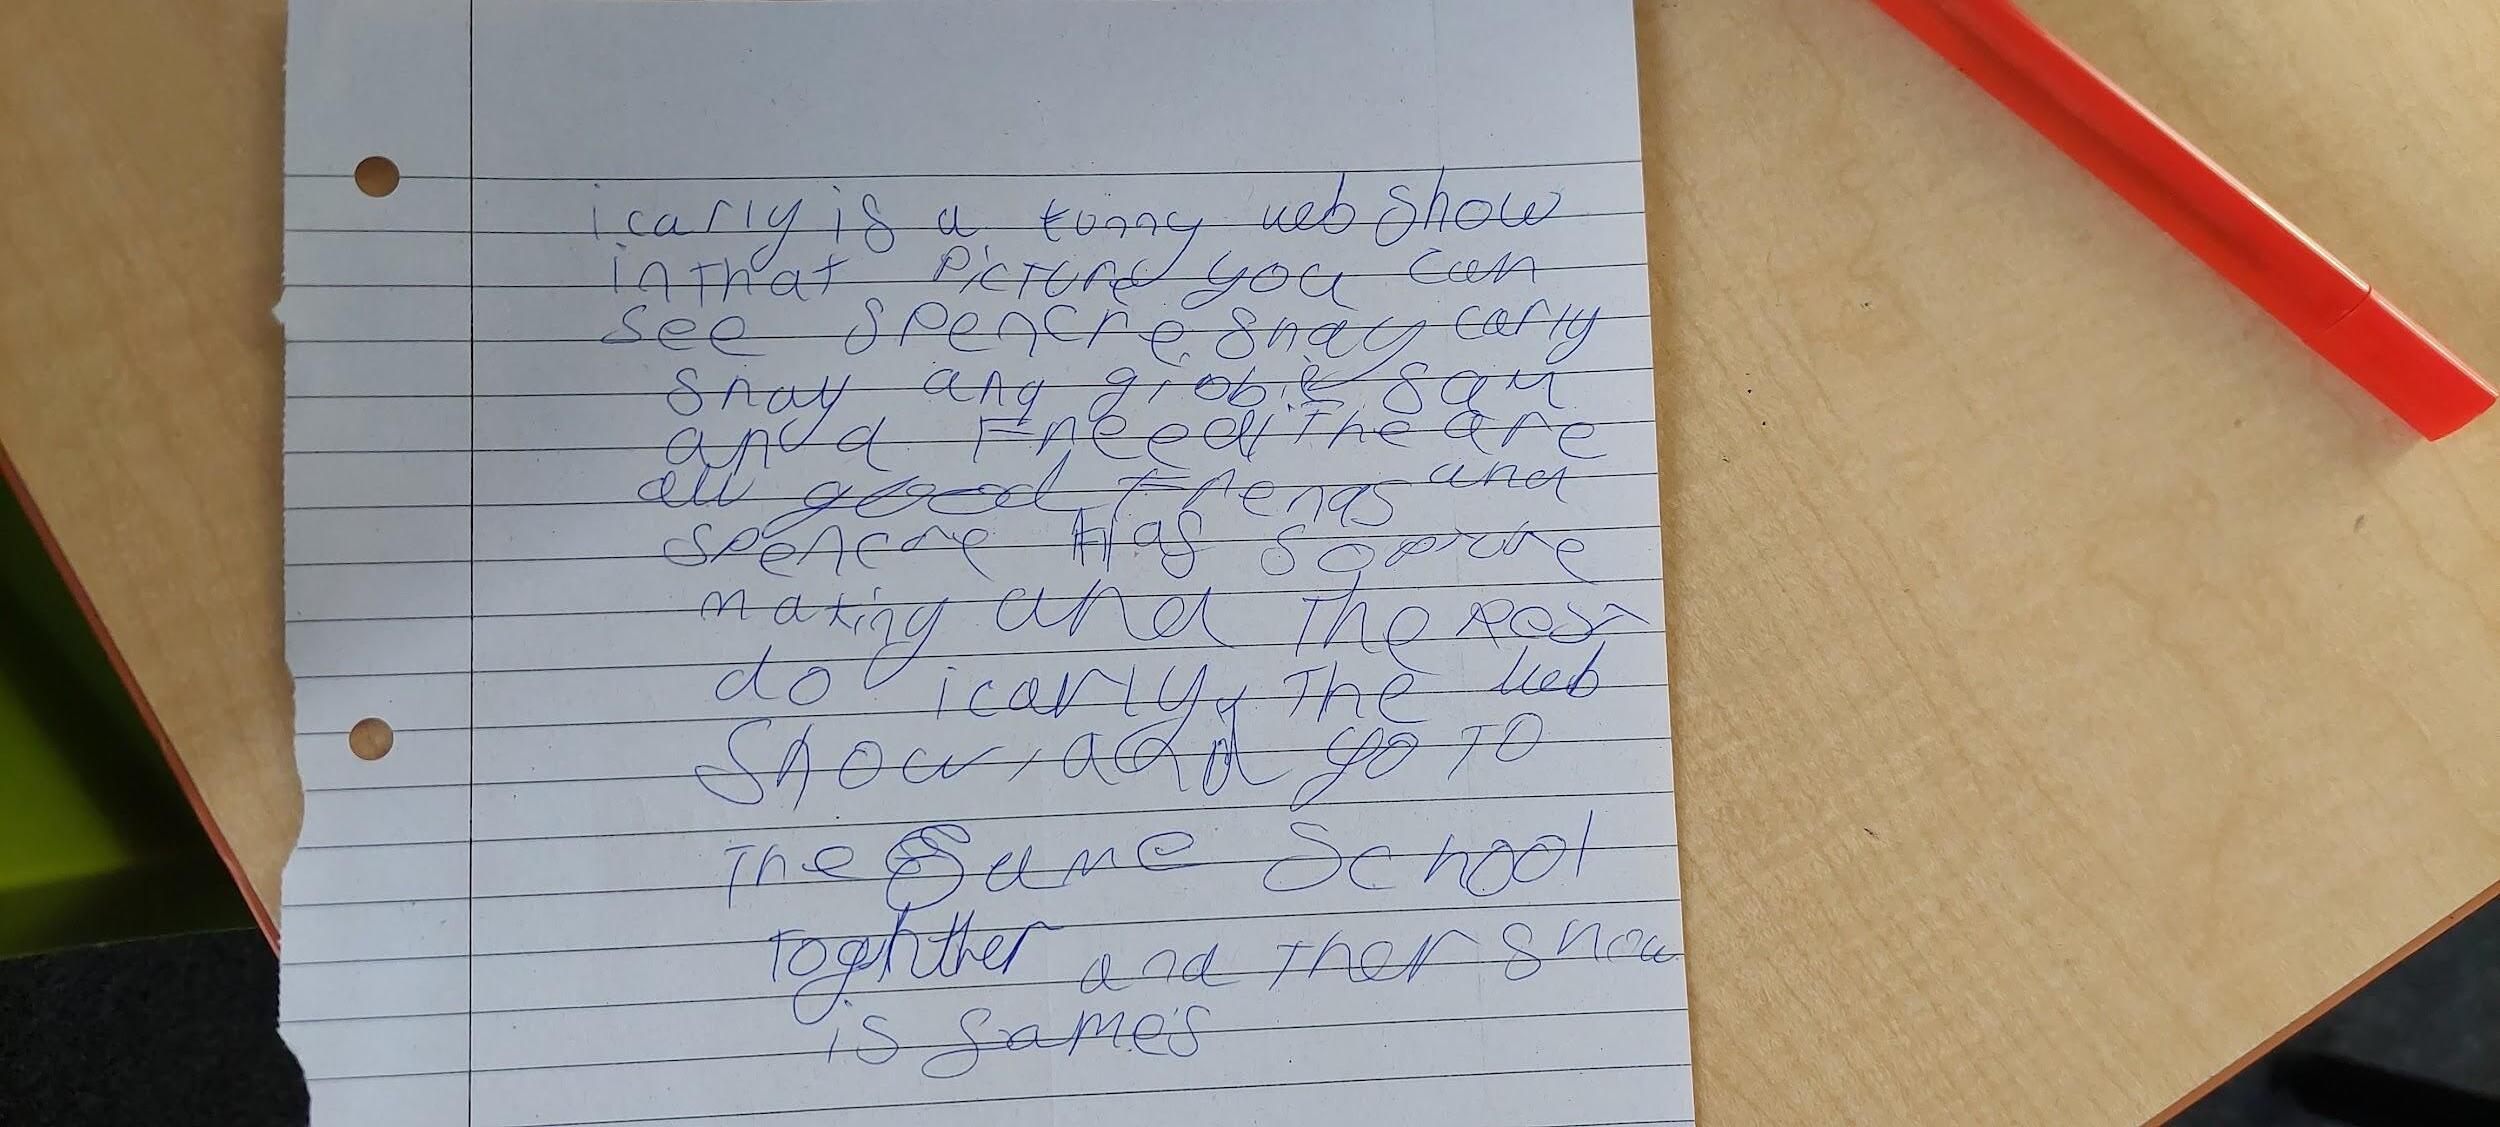 icarly is a funny web show
in that Picture you can
see spencre shay carly
shay and gibbie sam
and Freed the are
all good Frends and
spencre Has
making and The Rest
do icarly, The web
Show, and go TO
The Same School
Together and Ther show
is fames